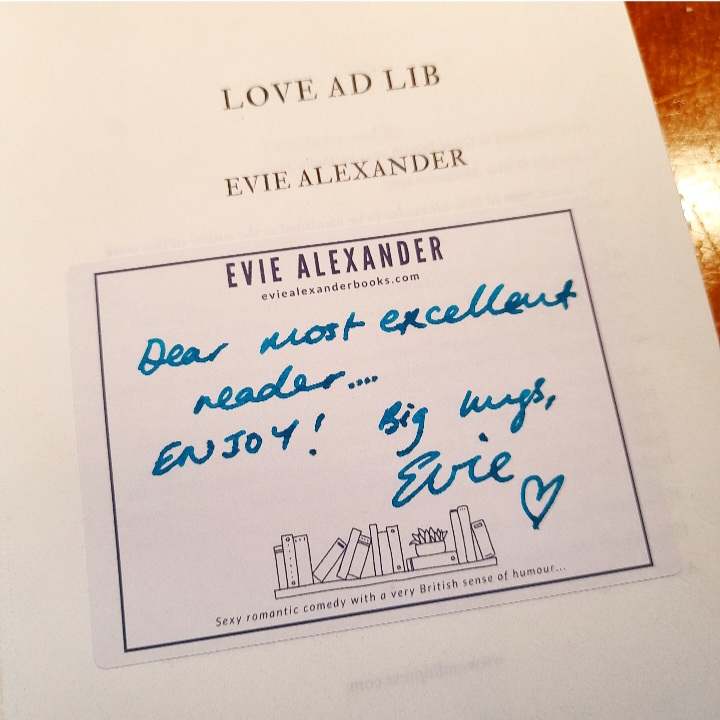 LOVE AD LIB
EVIE ALEXANDER
EVIE ALEXANDER
eviealexanderbooks.com
Dear most excellent
reader....
ENJOY! Big hugs,
Evie
Sexy romantic comedy with a very British sense of humour...